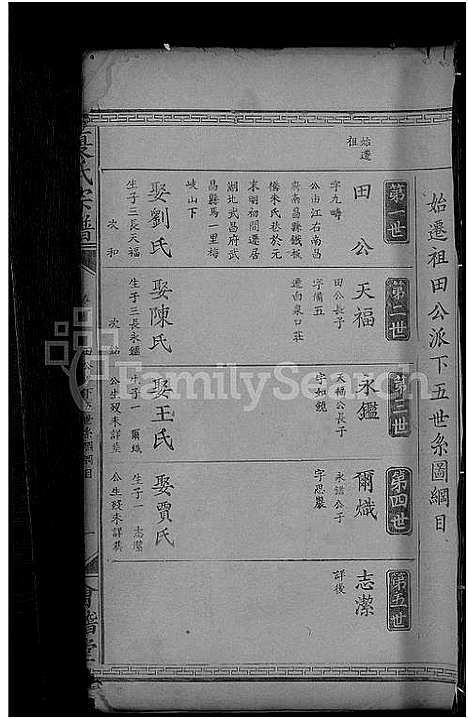 始遷祖田公派下五世系圖綱目
第一世
始遷
祖
田公
字九疇
公由江右南昌
府南昌縣鐵板
橋朱氏巷於元
末明初間遷居
湖北武昌府武
昌縣馬一里梅
峽山下
娶劉氏
生子三長天福
次 和
第二世
天福
田公長子
字備五
遷白泉口莊
娶陳氏
生子三長永鑑
次
第三世
永鑑
天福公長子
字如鏡
娶王氏
生子一 爾熾
公生歿未詳葬
第四世
爾熾
永鑑公子
字忍巖
娶賈氏
生子一 志潔
公生歿未詳葬
第五世
志潔
詳後
氏宗譜
田公下五世系圖綱目
一
堂
FamilySearch